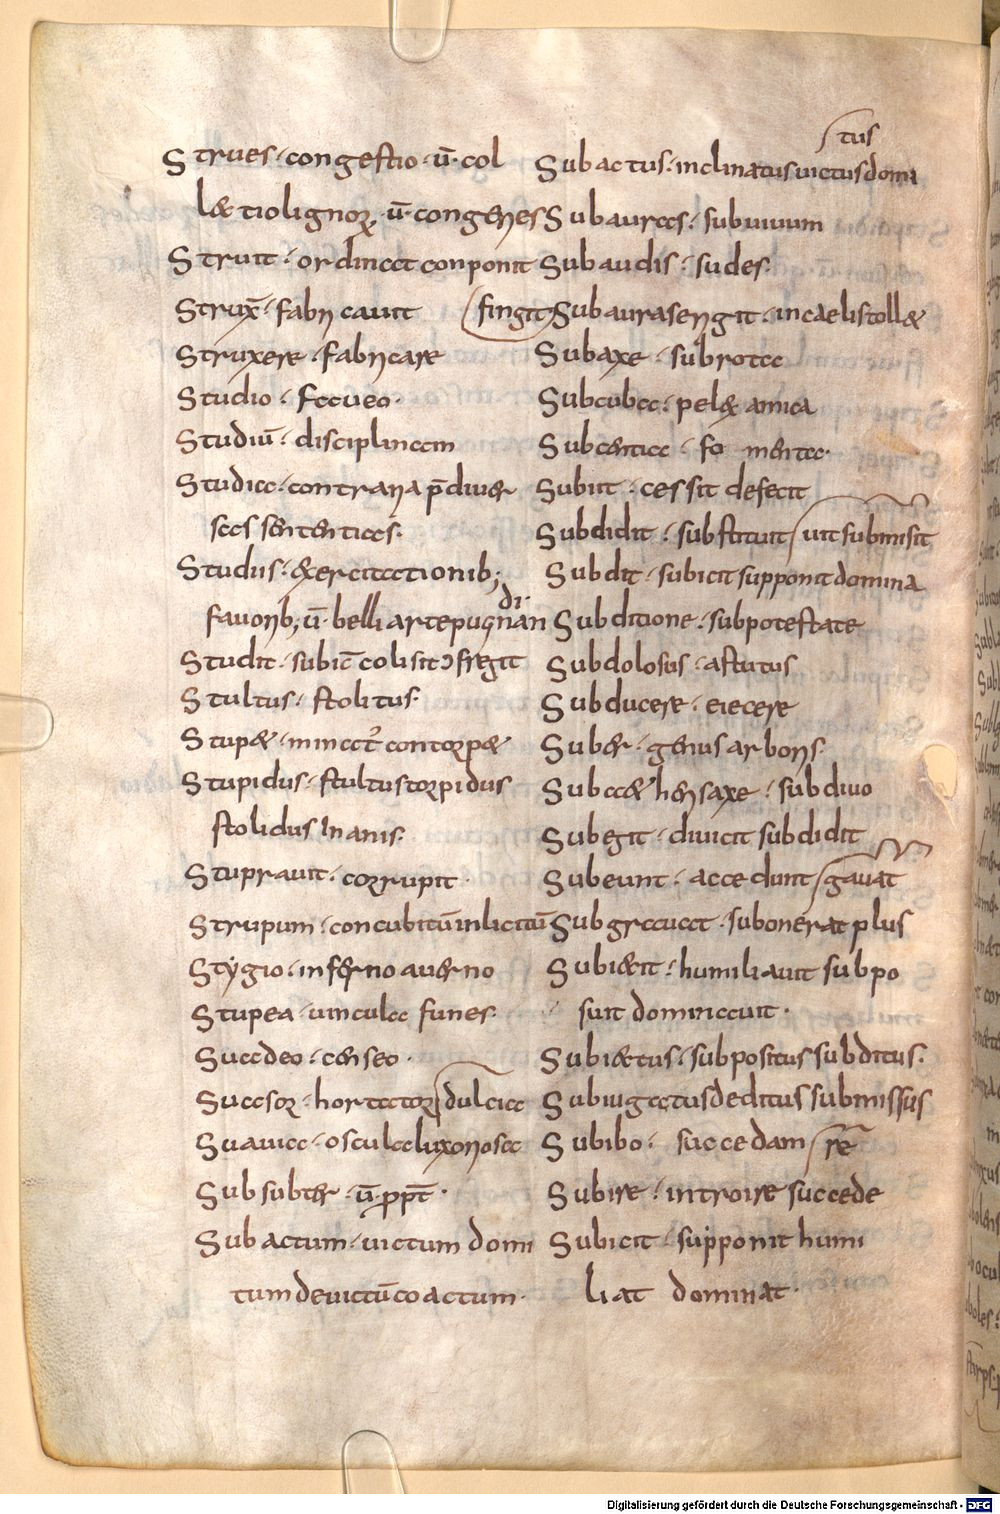 Strues · congestio · ū · col
lectio lignoꝝ · ū · congeries
Struit · ordinat conponit
Strux̄ · fabricauit (fingit
Struxere · fabricare
Studio · faueo ·
Studiū · disciplinam
Studia · contraria p̄ diuer
sas sententias ·
Studiis · exercitationib;
di ·
fauorib; ū · belli arte pugnan
Studit · subic̄ colisit ↄfregit
Stultus · stolitus ·
Stupet · mirat̄ contorpet
Stupidus · stultus torpidus
stolidus inanis ·
Stuprauit · corrupit ·
Strupum · concubitū inlicitū
Stygio · inferno auerno
Stupea · uincula funes ·
Suadeo · censeo ·
Suasor · hortator / dulcia
Suauia · oscula luxoriosa
Sub subter · ū · ꝓpt̄ ·
Subactum · uictum domi
tum deuictū coactum ·
tus
Subactus · inclinatus uictus domi
Subauras · subuiuum
Subaudis · sudes ·
Subauras erigit · in caelis tollet
Subaxe · sub rota
Subcuba · pelex amica
Subcentia · fo menta ·
Subiit · cessit defecit
Subdidit · substituit / uit submisit
Subdit · subicit supponit domina
Subditione · sub potestate
Subdolosus · astutus
Subducere · eiecere
Suber · genus arboris ·
Sub aetheris axe · sub diuo
Subegit · diuicit subdidit
Subeunt · accedunt / gauat
Subgrauat · subonerat plus
Subiecit · humiliauit subpo
suit dominauit ·
Subiectus · subpositus subditus ·
Subiugatus deditus submissus
Subibo · succedam / re
Subire · introire succede
Subicit · supponit humi
liat dominat ·
Digitalisierung gefördert durch die Deutsche Forschungsgemeinschaft - DFG